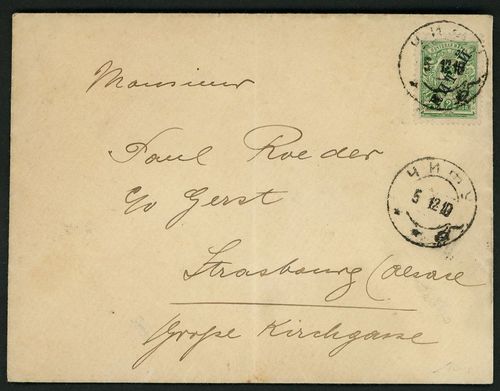 ЧИФУ
5 12.10
КИТАЙ
Monsieur
Paul Roeder
c/o Gerst
Strasbourg (Alsace
Große Kirchgasse
ЧИФУ
5 12.10